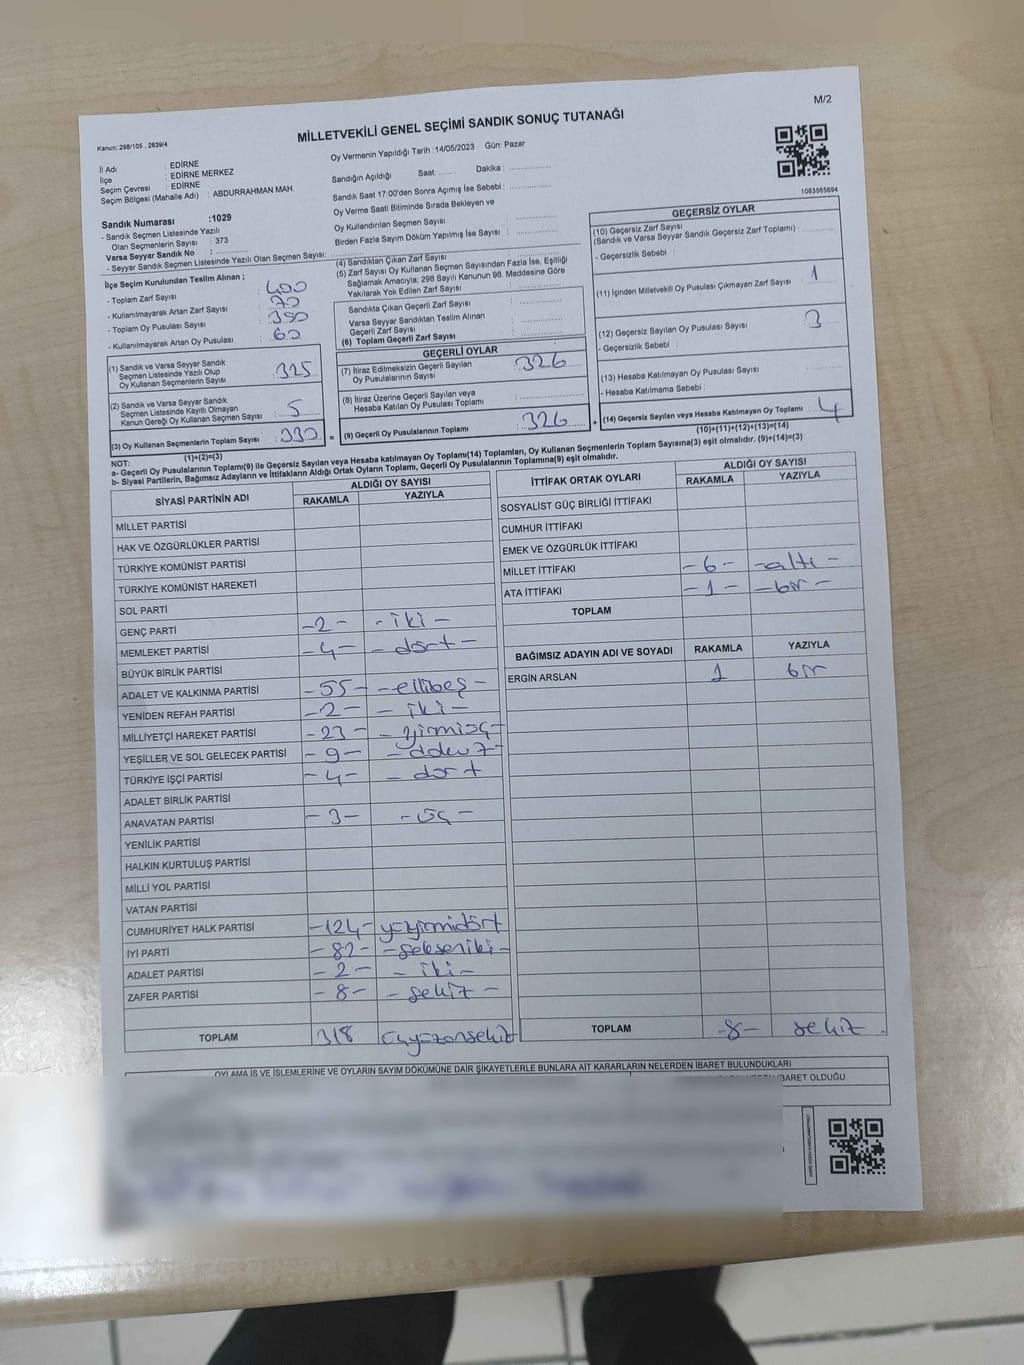 M/2
MİLLETVEKİLİ GENEL SEÇİMİ SANDIK SONUÇ TUTANAĞI
Kanun: 298/105 , 2839/4
İl Adı : EDİRNE
İlçe : EDİRNE MERKEZ
Seçim Çevresi : EDİRNE
Seçim Bölgesi (Mahalle Adı) : ABDURRAHMAN MAH.
Sandık Numarası :1029
- Sandık Seçmen Listesinde Yazılı
Olan Seçmenlerin Sayısı : 373
Varsa Seyyar Sandık No :
- Seyyar Sandık Seçmen Listesinde Yazılı Olan Seçmen Sayısı:
Oy Vermenin Yapıldığı Tarih :14/05/2023 Gün: Pazar
Sandığın Açıldığı Saat: Dakika :
Sandık Saat 17:00'den Sonra Açımış İse Sebebi :
Oy Verme Saati Bitiminde Sırada Bekleyen ve
Oy Kullandırılan Seçmen Sayısı :
Birden Fazla Sayım Döküm Yapılmış İse Sayısı :
1083565694
İlçe Seçim Kurulundan Teslim Alınan ;
- Toplam Zarf Sayısı : 400
- Kullanılmayarak Artan Zarf Sayısı : 70
- Toplam Oy Pusulası Sayısı : 390
- Kullanılmayarak Artan Oy Pusulası : 60
(1) Sandık ve Varsa Seyyar Sandık
Seçmen Listesinde Yazılı Olup
Oy Kullanan Seçmenlerin Sayısı : 325
(2) Sandık ve Varsa Seyyar Sandık
Seçmen Listesinde Kayıtlı Olmayan
Kanun Gereği Oy Kullanan Seçmen Sayısı : 5
(3) Oy Kullanan Seçmenlerin Toplam Sayısı : 330
(1)+(2)=(3)
(4) Sandıktan Çıkan Zarf Sayısı :
(5) Zarf Sayısı Oy Kullanan Seçmen Sayısından Fazla İse, Eşitliği
Sağlamak Amacıyla; 298 Sayılı Kanunun 98. Maddesine Göre
Yakılarak Yok Edilen Zarf Sayısı :
Sandıkta Çıkan Geçerli Zarf Sayısı :
Varsa Seyyar Sandıktan Teslim Alınan
Geçerli Zarf Sayısı :
(6) Toplam Geçerli Zarf Sayısı :
GEÇERLİ OYLAR
(7) İtiraz Edilmeksizin Geçerli Sayılan
Oy Pusulalarının Sayısı : 326
(8) İtiraz Üzerine Geçerli Sayılan veya
Hesaba Katılan Oy Pusulası Toplamı :
(9) Geçerli Oy Pusulalarının Toplamı : 326
GEÇERSİZ OYLAR
(10) Geçersiz Zarf Sayısı
(Sandık ve Varsa Seyyar Sandık Geçersiz Zarf Toplamı) :
- Geçersizlik Sebebi :
(11) İçinden Milletvekili Oy Pusulası Çıkmayan Zarf Sayısı : 1
(12) Geçersiz Sayılan Oy Pusulası Sayısı : 3
- Geçersizlik Sebebi :
(13) Hesaba Katılmayan Oy Pusulası Sayısı :
- Hesaba Katılmama Sebebi :
(14) Geçersiz Sayılan veya Hesaba Katılmayan Oy Toplamı : 4
(10)+(11)+(12)+(13)=(14)
NOT:
a- Geçerli Oy Pusulalarının Toplamı(9) ile Geçersiz Sayılan veya Hesaba Katılmayan Oy Toplamı(14) Toplamları, Oy Kullanan Seçmenlerin Toplam Sayısına(3) eşit olmalıdır. (9)+(14)=(3)
b- Siyasi Partilerin, Bağımsız Adayların ve İttifakların Aldığı Ortak Oyların Toplamı, Geçerli Oy Pusulalarının Toplamına(9) eşit olmalıdır.
SİYASİ PARTİNİN ADI ALDIĞI OY SAYISI
RAKAMLA YAZIYLA
MİLLET PARTİSİ
HAK VE ÖZGÜRLÜKLER PARTİSİ
TÜRKİYE KOMÜNİST PARTİSİ
TÜRKİYE KOMÜNİST HAREKETİ
SOL PARTİ
GENÇ PARTİ -2- -iki-
MEMLEKET PARTİSİ -4- -dört-
BÜYÜK BİRLİK PARTİSİ
ADALET VE KALKINMA PARTİSİ -55- -ellibeş-
YENİDEN REFAH PARTİSİ -2- -iki-
MİLLİYETÇİ HAREKET PARTİSİ -23- -yirmiüç-
YEŞİLLER VE SOL GELECEK PARTİSİ -9- -dokuz-
TÜRKİYE İŞÇİ PARTİSİ -4- -dört
ADALET BİRLİK PARTİSİ
ANAVATAN PARTİSİ -3- -üç-
YENİLİK PARTİSİ
HALKIN KURTULUŞ PARTİSİ
MİLLİ YOL PARTİSİ
VATAN PARTİSİ
CUMHURİYET HALK PARTİSİ -124- yüzyirmidört
İYİ PARTİ -82- -sekseniki-
ADALET PARTİSİ -2- -iki-
ZAFER PARTİSİ -8- -sekiz-
TOPLAM 318 üçyüzonsekiz
İTTİFAK ORTAK OYLARI ALDIĞI OY SAYISI
RAKAMLA YAZIYLA
SOSYALİST GÜÇ BİRLİĞİ İTTİFAKI
CUMHUR İTTİFAKI
EMEK VE ÖZGÜRLÜK İTTİFAKI
MİLLET İTTİFAKI -6- -altı-
ATA İTTİFAKI -1- -bir-
TOPLAM
BAĞIMSIZ ADAYIN ADI VE SOYADI RAKAMLA YAZIYLA
ERGİN ARSLAN 1 bir
TOPLAM -8- sekiz
OYLAMA İŞ VE İŞLEMLERİNE VE OYLARIN SAYIM DÖKÜMÜNE DAİR ŞİKAYETLERLE BUNLARA AİT KARARLARIN NELERDEN İBARET BULUNDUKLARI
İBARET OLDUĞU